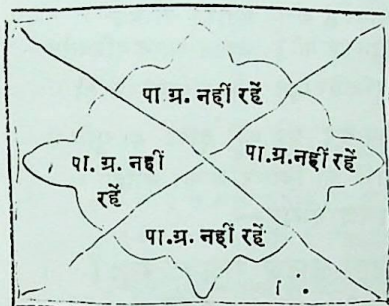 पा.ग्र. नहीं रहें
पा.ग्र. नहीं
रहें
पा.ग्र.नहीं रहें
पा.ग्र. नहीं रहें